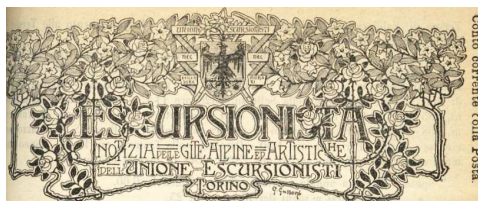 UNIONE ESCURSIONISTI
L'ESCURSIONISTA
NOTIZIA DELLE GITE ALPINE ED ARTISTICHE
DELL'UNIONE ESCURSIONISTI
TORINO
Conto corrente colla Posta.